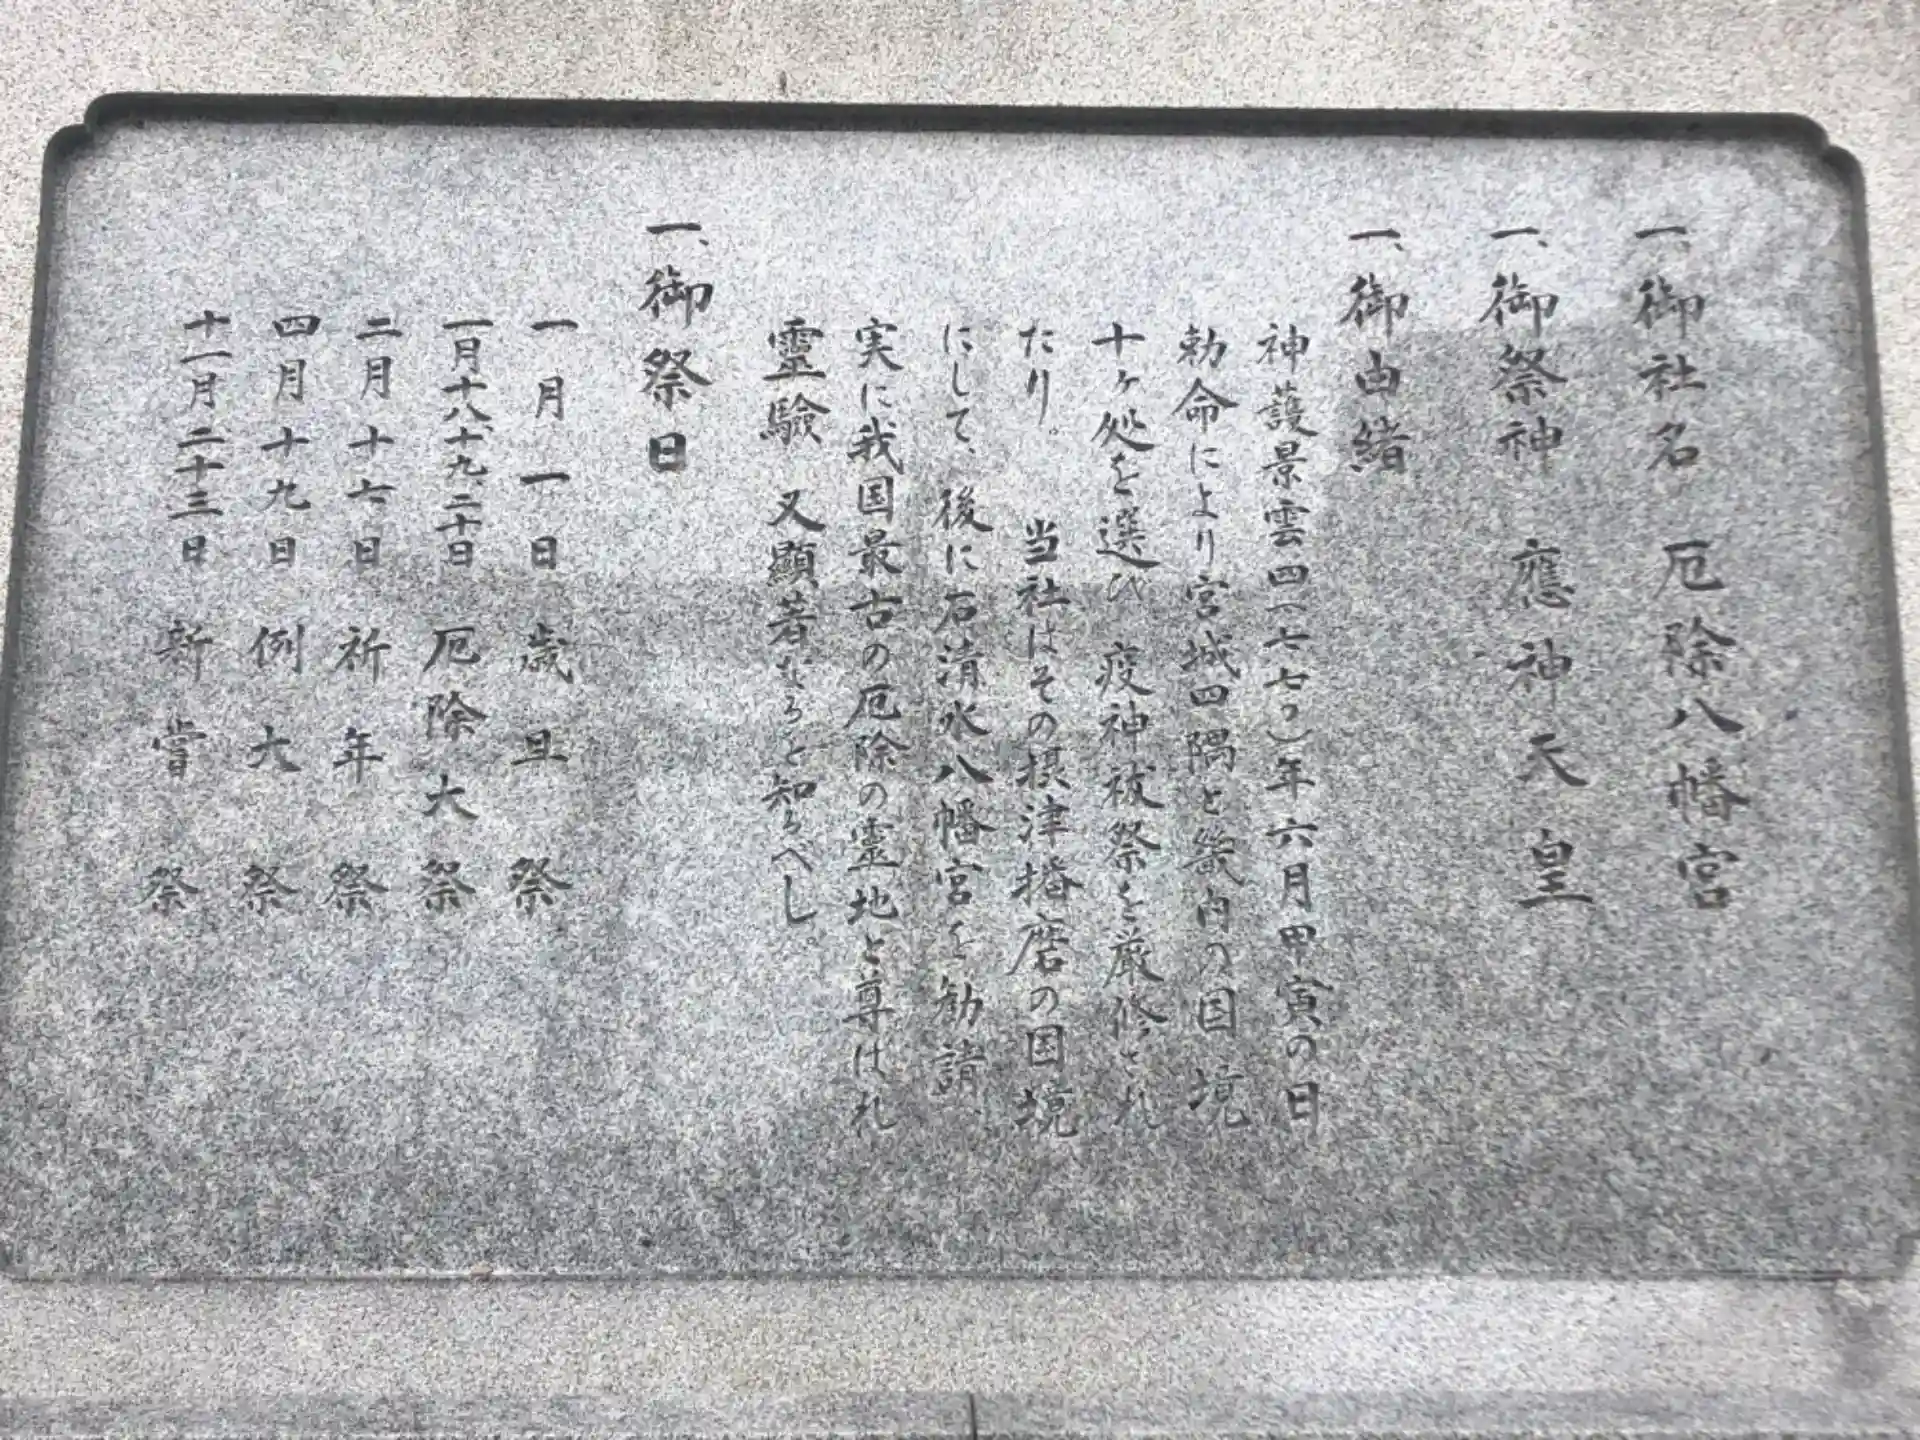 一、御社名 厄除八幡宮
一、御祭神 應神天皇
一、御由緒
神護景雲四(七七〇)年六月甲寅の日
勅命により宮城四隅と畿内の国境
十ヶ処を選び 疫神祓祭を厳修され
たり。 当社はその摂津播磨の国境
にして、後に石清水八幡宮を勧請、
実に我国最古の厄除の霊地と尊ばれ
靈驗 又顯著なるを知るべし。
一、御祭日
一月一日 歳旦祭
一月十八、十九、二十日 厄除大祭
二月十七日 祈年祭
四月十九日 例大祭
十一月二十三日 新嘗祭